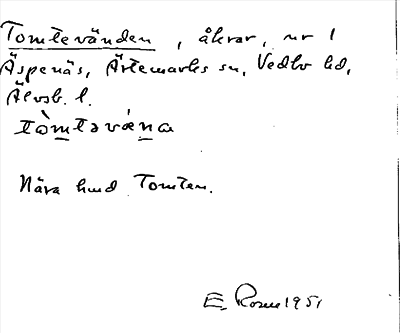 Tomtevänden, åkrar, nr 1
Äspenäs, Ärtemarks sn, Vedbo hd,
Älvsb. l.
tòmtəvǽna
Nära hmd Tomten.
E. Rosen 1951